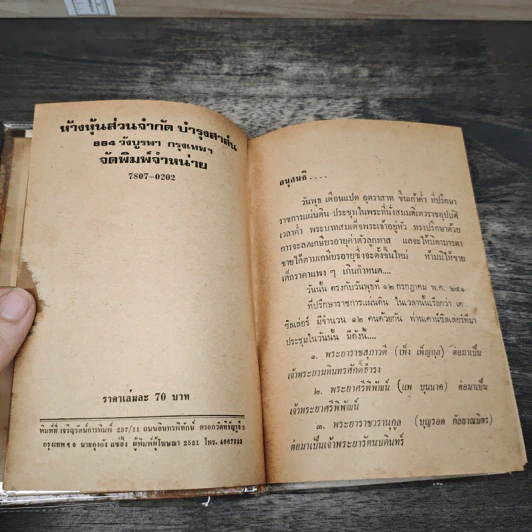 ห้างหุ้นส่วนจำกัด บำรุงสาส์น
864 วังบูรพา กรุงเทพฯ
จัดพิมพ์จำหน่าย
7807-0202
ราคาเล่มละ 70 บาท
พิมพ์ที่ เจริญรัตน์การพิมพ์ 237/11 ถนนอินทรพิทักษ์
กรุงเทพฯ ผู้พิมพ์ผู้โฆษณา 2521 โทร. 4667223
อนุสนธิ....
วันพุธ เดือนแปด อุตราสาฒ ขึ้นเก้าค่ำ ที่ปรึกษา
ราชการแผ่นดิน ประชุมในพระที่นั่งสมมติเทวราชอุปบัติ
เวลาค่ำ พระบาทสมเด็จพระเจ้าอยู่หัว ทรงปรึกษาด้วย
การจะลดเกษียรอายุค่าตัวลูกทาส แลจะให้บิดามารดา
ขายได้ตามเกษียรอายุซึ่งจะตั้งขึ้นใหม่ ห้ามมิให้ขาย
เด็กราคาแพง ๆ เกินกำหนด....
วันนั้น ตรงกับวันพุธที่ ๑๒ กรกฎาคม พ.ศ.
ที่ปรึกษาราชการแผ่นดิน ในเวลานั้นเรียกว่า
ซิลเล่อร์ มีจำนวน ๑๒ คนด้วยกัน ท่านเคาน์ซิลเล่อร์ที่มา
ประชุมในวันนั้น มีดังนี้....
๑. พระยาราชสุภาวดี (เพ็ง เพ็ญกุล) ต่อมาเป็น
เจ้าพระยามหินทรศักดิ์ธำรง
๒. พระยาศรีพิพัฒน์ (แพ บุนนาค) ต่อมาเป็น
เจ้าพระยาศรีพิพัฒน์
๓. พระยาราชวรานุกูล (บุญรอด กัลยาณมิตร)
ต่อมาเป็นเจ้าพระยารัตนบดินทร์